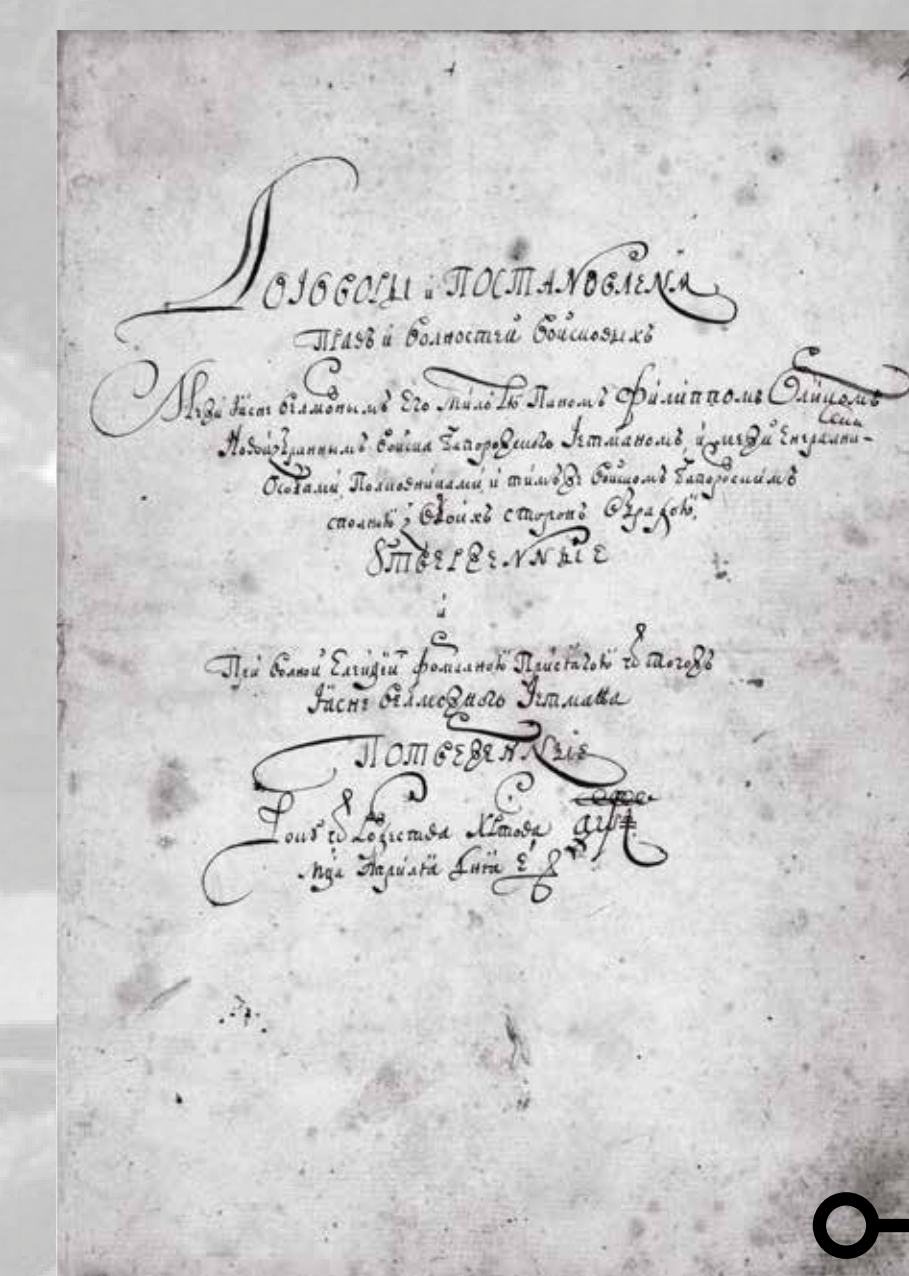 Договоры и Постановленѧ
Правъ и волностей войсковыхъ
Межи Ясне велможнымъ Его милостю Паномъ Филиппомъ Орликомъ
Новоизбраннымъ войска Запорозского Гетманомъ, и межи Енерални
Особами Полковниками и тимъже войскомъ Запорозскимъ
сполною з обоихъ сторонъ Обрадою,
Утверженные
и
При волной Елекціи формалною Присягою ѿ тогожъ
Ясне велможного Гетмана
Потверженные
Року ѿ Рожества Христова аѱі
мца Априлїа днѧ є҃